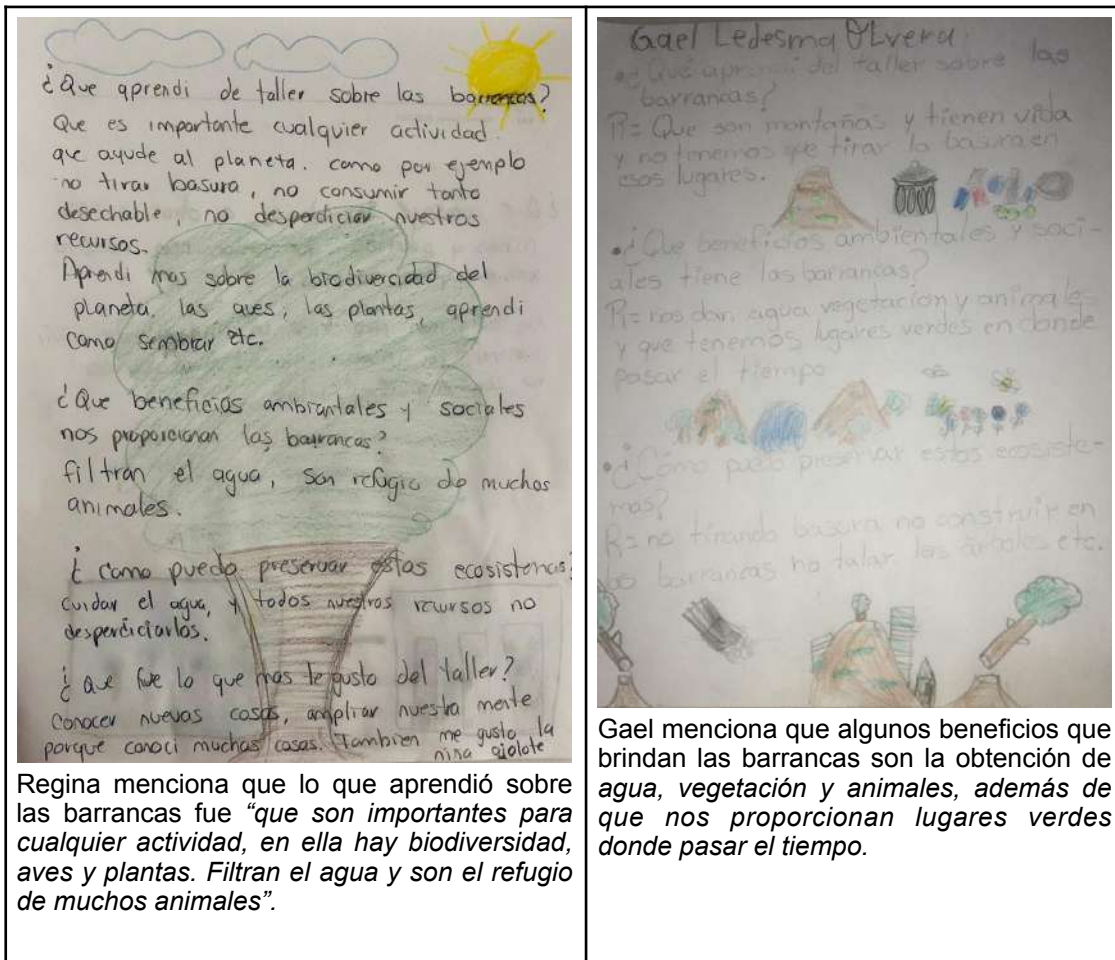 ¿Que aprendi de taller sobre las barrancas?
Que es importante cualquier actividad
que ayude al planeta. como por ejemplo
no tirar basura, no consumir tanto
desechable, no desperdiciar nuestros
recursos.
Aprendi mas sobre la biodivercidad del
planeta. las aves, las plantas, aprendi
como sembrar etc.
¿Que beneficios ambiantales y sociales
nos proporcionan las barrancas?
filtran el agua, son refugio de muchos
animales.
¿como puedo preservar estos ecosistemas?
cuidar el agua, y todos nuestros recursos no
desperdiciarlos.
¿que fue lo que mas te gusto del taller?
Conocer nuevas cosas, ampliar nuestra mente
porque conoci muchas cosas. Tambien me gusto la
niña ajolote
Regina menciona que lo que aprendió sobre
las barrancas fue “que son importantes para
cualquier actividad, en ella hay biodiversidad,
aves y plantas. Filtran el agua y son el refugio
de muchos animales”.
Gael Ledesma Olvera
•¿Qué aprendi del taller sobre las
barrancas?
R= Que son montañas y tienen vida
y no tenemos que tirar la basura en
esos lugares.
•¿Que beneficios ambientales y soci-
ales tiene las barrancas?
R= nos dan agua vegetación y animales
y que tenemos lugares verdes en donde
pasar el tiempo
•¿Cómo puedo preservar estos ecosiste-
mas?
R= no tirando basura no construir en
las barrancas no talar los árboles etc.
Gael menciona que algunos beneficios que
brindan las barrancas son la obtención de
agua, vegetación y animales, además de
que nos proporcionan lugares verdes
donde pasar el tiempo.